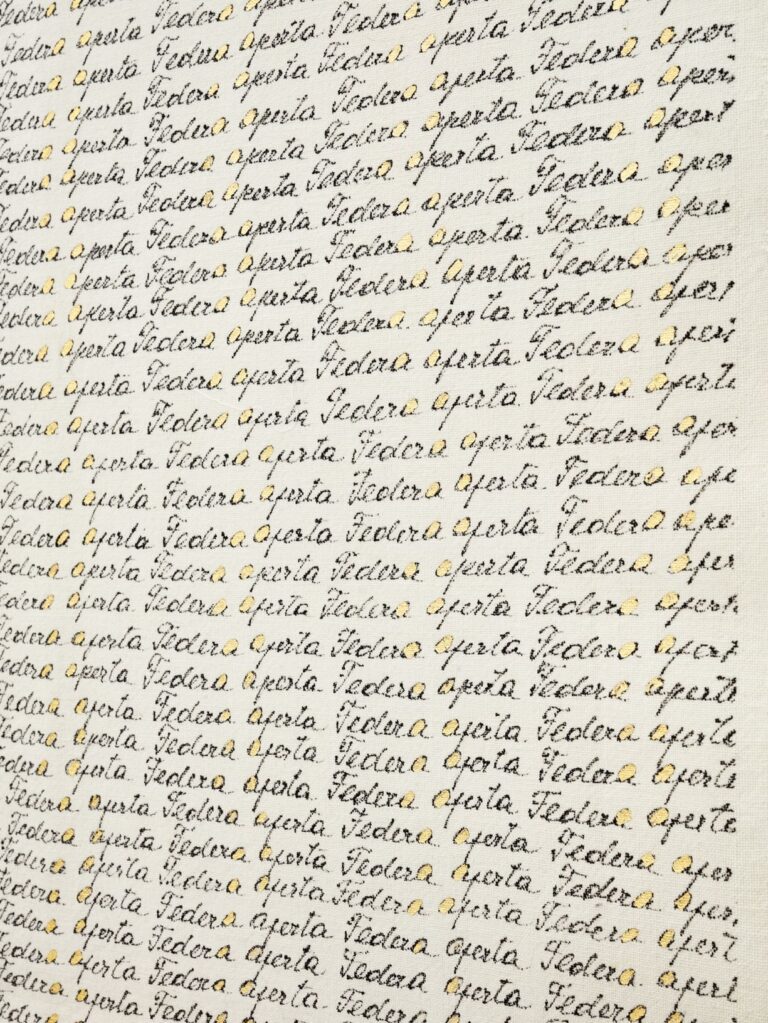 Federa aperta Federa aperta Federa
Federa aperta Federa aperta Federa aperta
Federa aperta Federa aperta Federa aperta
Federa aperta Federa aperta Federa aperta Federa aper
Federa aperta Federa aperta Federa aperta Federa aper
Federa aperta Federa aperta Federa aperta Federa apert
Federa aperta Federa aperta Federa aperta Federa aper
Federa aperta Federa aperta Federa aperta Federa aper
Federa aperta Federa aperta Federa aperta Federa aper
Federa aperta Federa aperta Federa aperta Federa apert
Federa aperta Federa aperta Federa aperta Federa aper
Federa aperta Federa aperta Federa aperta Federa apert
Federa aperta Federa aperta Federa aperta Federa aper
Federa aperta Federa aperta Federa aperta Federa ape
Federa aperta Federa aperta Federa aperta Federa ape
Federa aperta Federa aperta Federa aperta Federa aper
Federa aperta Federa aperta Federa aperta Federa apert
Federa aperta Federa aperta Federa aperta Federa apert
Federa aperta Federa aperta Federa aperta Federa aperta
Federa aperta Federa aperta Federa aperta Federa aperta
Federa aperta Federa aperta Federa aperta Federa aperta
Federa aperta Federa aperta Federa aperta Federa aperta
Federa aperta Federa aperta Federa aperta Federa aper
Federa aperta Federa aperta Federa aperta Federa aper
Federa aperta Federa aperta Federa aperta Federa apert
Federa aperta Federa aperta Federa aperta Federa apert
Federa aperta Federa aperta Federa aperta Federa
Federa aperta Federa aperta Federa aperta
Federa aperta Federa aperta Federa
Federa aperta Federa